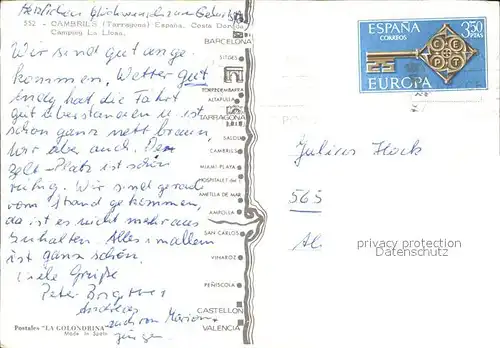 Herzlichen Glückwunsch zum Geburtstag
552 - CAMBRILS (Tarragona) España. Costa Dorada
Camping La Llosa.
Wir sind gut ange-
kommen, Wetter gut
hat die Fahrt
gut überstanden u. ist
schon ganz nett braun,
wir aber auch. Der
Zelt-Platz ist schön
ruhig. Wir sind gerad
vom Strand gekommen,
da ist es nicht mehr aus
zuhalten. Alles in allem
ist ganz schön.
Viele Grüße
Peter
Andreas
auch von Marion +
Jürgen
Postales "LA GOLONDRINA"
Made in Spain
BARCELONA
SITGES
TORREDEMBARRA
ALTAFULLA
TARRAGONA
SALOU
CAMBRILS
MIAMI-PLAYA
HOSPITALET del I.
AMETLLA DE MAR
AMPOLLA
SAN CARLOS
VINAROZ
PEÑISCOLA
CASTELLON
VALENCIA
ESPAÑA
CORREOS
3,50
PTAS
C E P T
EUROPA
Julius Hock
565
privacy protection
Datenschutz